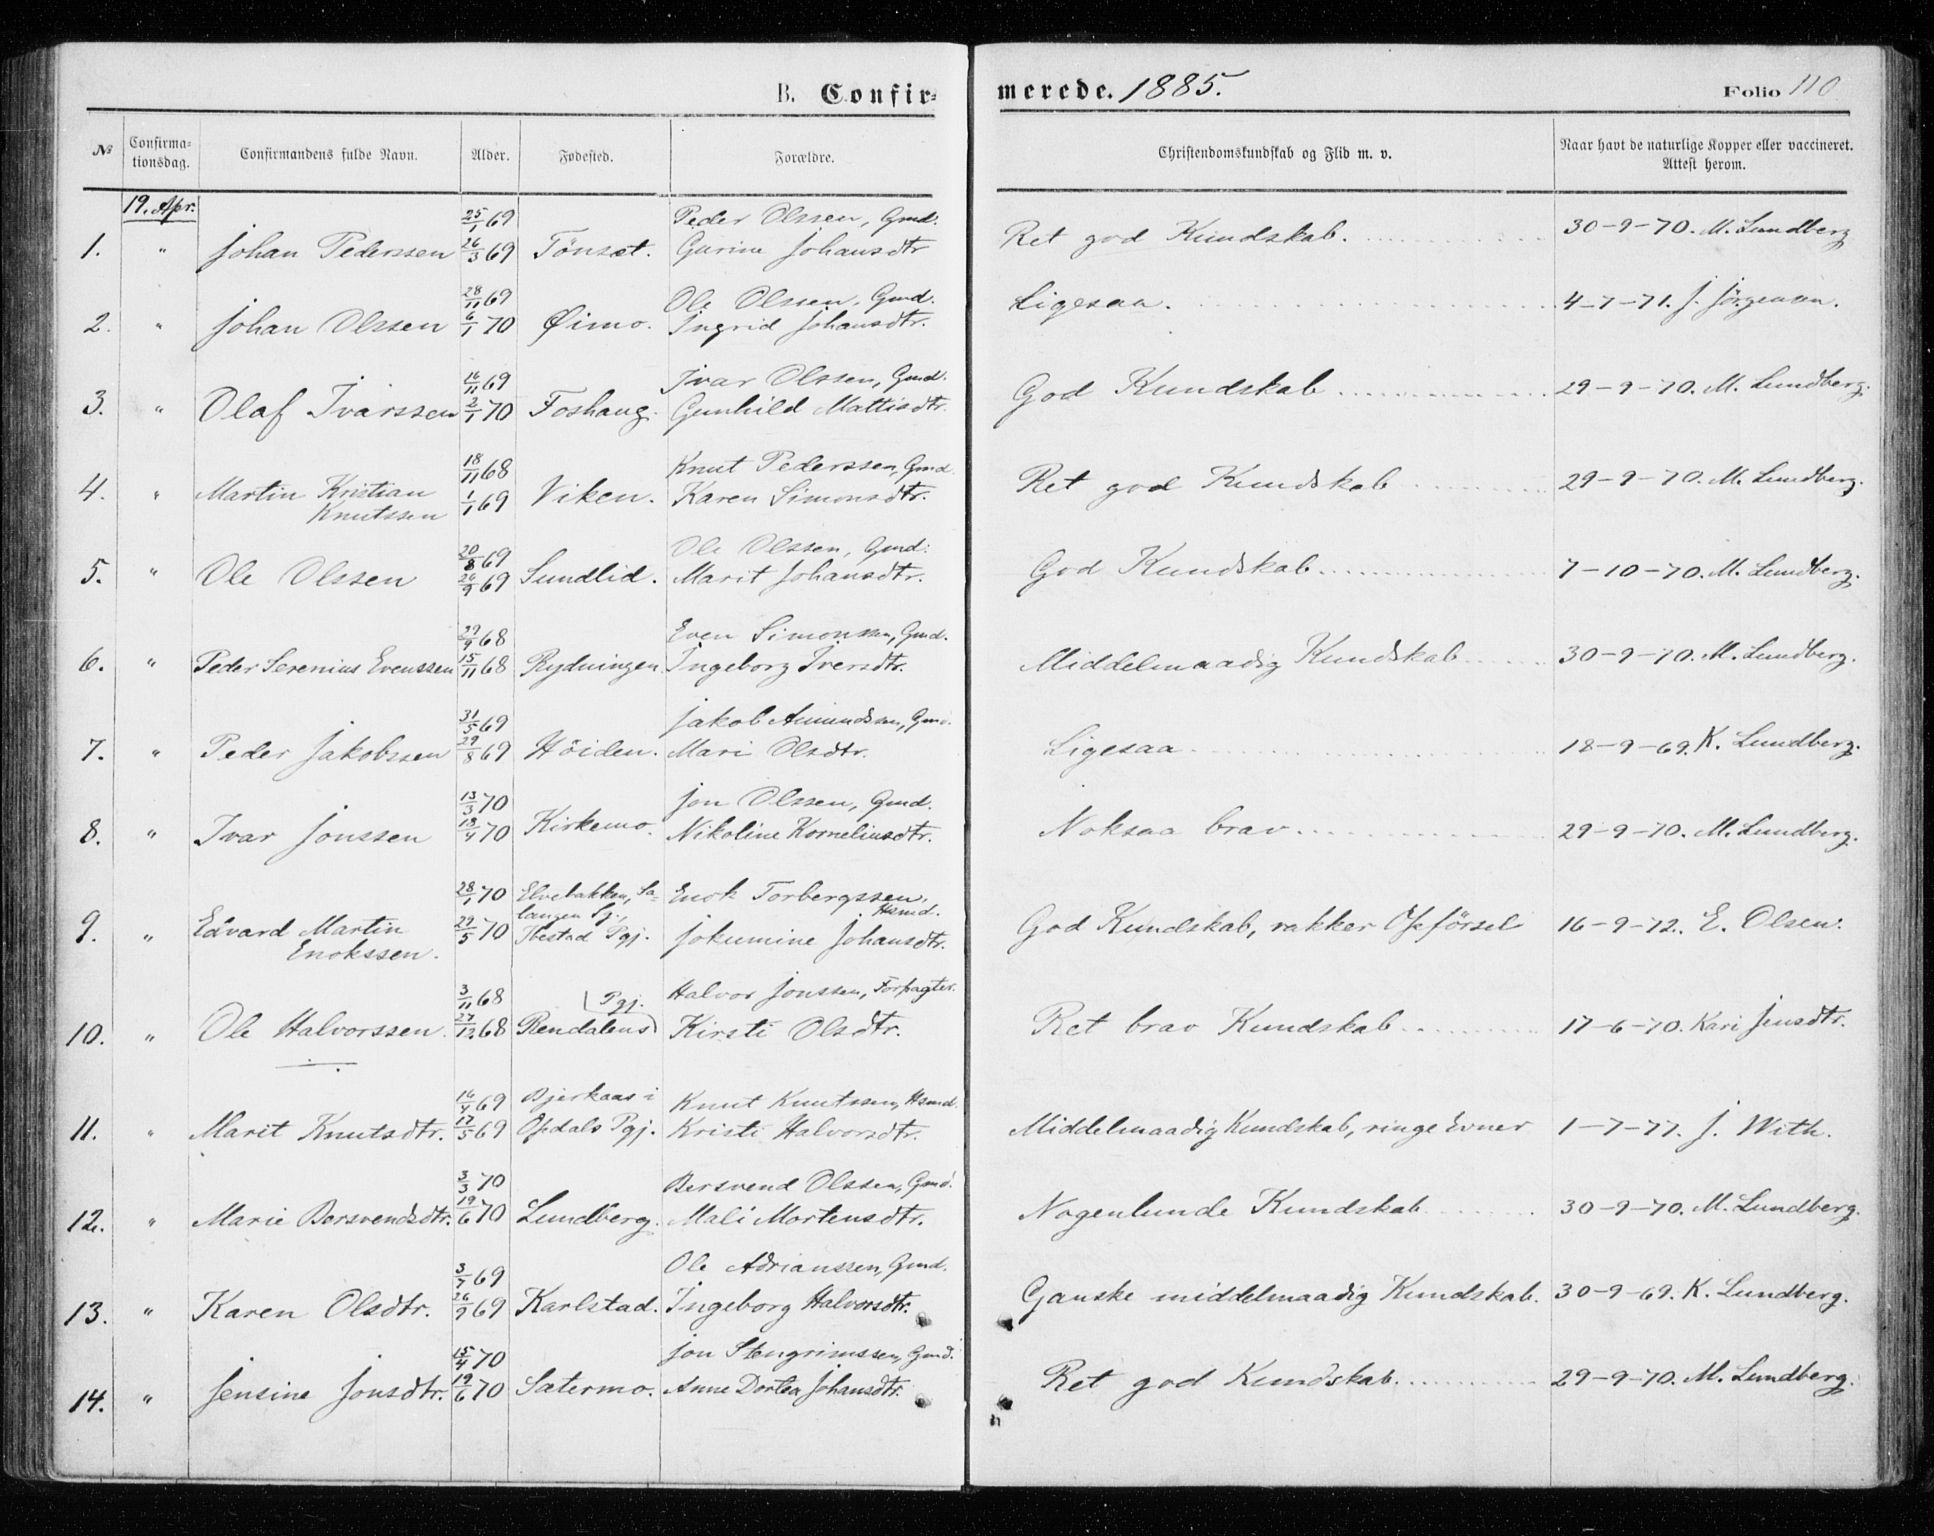 B. Confirmerede. 1885. Folio 110
№ Confirmationsdag. Confirmandens fulde Navn. Alder. Fødested. Forældre. Christendomskundskab og Flid m. v. Naar havt de naturlige Kopper eller vaccineret. Attest herom.
19. Apr.
25/1 69 Peder Olssen, Gmd.
1. " Johan Pederssen 26/3 69 Tönset. Gurine Johansdtr Ret god Kundskab. 30-9-70. M. Lundberg
28/11 69 Ole Olssen, Gmd.
2. " Johan Olssen 6/1 70 Øimo. Ingrid Johansdtr. Ligesaa. 4-7-71. J. Jörgensen.
16/11 69 Ivar Olssen, Gmd.
3. " Olaf Ivarssen 2/1 70 Foshaug. Gunhild Mattisdtr. God Kundskab 29-9-70. M. Lundberg.
18/11 68 Knut Pederssen, Gmd.
4. " Martin Kristian 1/1 69 Viken. Karen Simonsdtr. Ret god Kundskab 29-9-70. M. Lundberg.
Knutssen
20/8 69 Ole Olssen, Gmd.
5. " Ole Olssen 26/9 69 Sundlid. Marit Johansdtr. God Kundskab 7-10-70. M. Lundberg.
29/9 68 Even Simonssen, Gmd.
6. " Peder Serenius Evenssen 15/11 68 Rydningen Ingeborg Iversdtr. Middelmaadig Kundskab 30-9-70. M. Lundberg.
31/5 69 Jakob Amundsen, Gmd.
7. " Peder Jakobssen 29/8 69 Höiden. Mari Olsdtr. Ligesaa 18-9-69. K. Lundberg.
13/3 70 Jon Olssen, Gmd.
8. " Ivar Jonssen 18/4 70 Kirkemo. Nikoline Korneliusdtr. Noksaa brav 29-9-70. M. Lundberg.
28/1 70 Elvebakken, Sa- Enok Torbergssen,
langen Sj., Hsmd.
9. " Edvard Martin 29/5 70 Ibestad Pgj. Jokumine Johansdtr. God Kundskab, vakker Opförsel 16-9-72. E. Olsen.
Enokssen.
3/11 68 Pgj. Halvor Jonssen, Forpagter.
10. " Ole Halvorssen. 27/12 68 Rendalens Kirsti Olsdtr. Ret brav Kundskab 17-6-70. Kari Jensdtr.
16/4 69 Bjerkaas i Knut Knutssen, Hsmd.
11. " Marit Knutsdtr. 17/5 69 Opdals Pgj. Kristi Halvorsdtr. Middelmaadig Kundskab, ringe Evner 1-7-77. J. With.
3/3 70 Bersvend Olssen, Gmd.
12. " Marie Bersvendsdtr. 19/6 70 Lundberg. Mali Mortensdtr. Nogenlunde Kundskab 30-9-70. M. Lundberg.
3/7 69 Ole Adrianssen, Gmd.
13. " Karen Olsdtr. 26/9 69 Karlstad. Ingeborg Halvorsdtr. Ganske middelmaadig Kundskab. 30-9-69. K. Lundberg.
15/4 70 Jon Stengrimssen, Gmd.
14. " Jensine Jonsdtr. 19/6 70 Sætermo. Anne Dortea Johansdtr. Ret god Kundskab. 29-9-70. M. Lundberg.